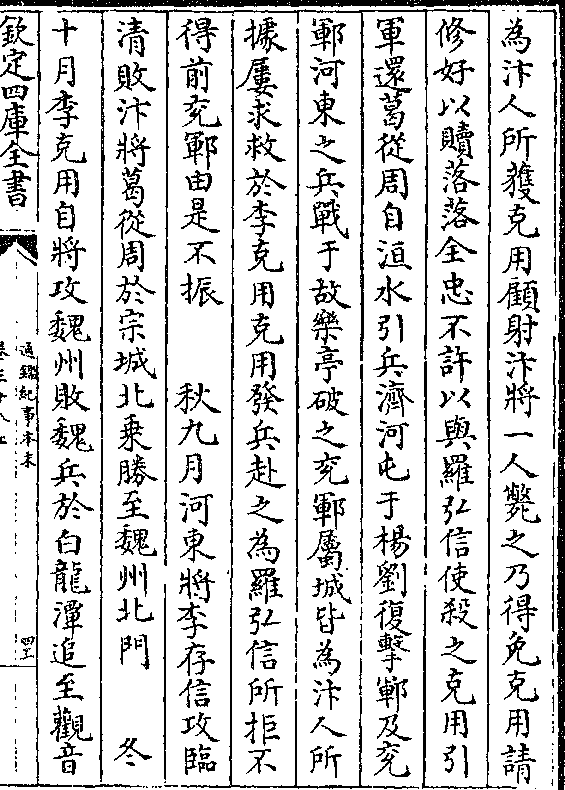 為汴人所獲克用顧射汴將一人斃之乃得免克用請
修好以贖落落全忠不許以與羅弘信使殺之克用引
軍還葛從周自洹水引兵濟河屯于楊劉復擊鄆及兗
鄆河東之兵戰于故樂亭破之兗鄆屬城皆為汴人所
據屢求救於李克用克用發兵赴之為羅弘信所拒不
得前兗鄆由是不振 秋九月河東將李存信攻臨
清敗汴將葛從周於宗城北乘勝至魏州北門 冬
十月李克用自將攻魏州敗魏兵於白龍潭追至觀音
欽定四庫全書
通鑑紀事本末